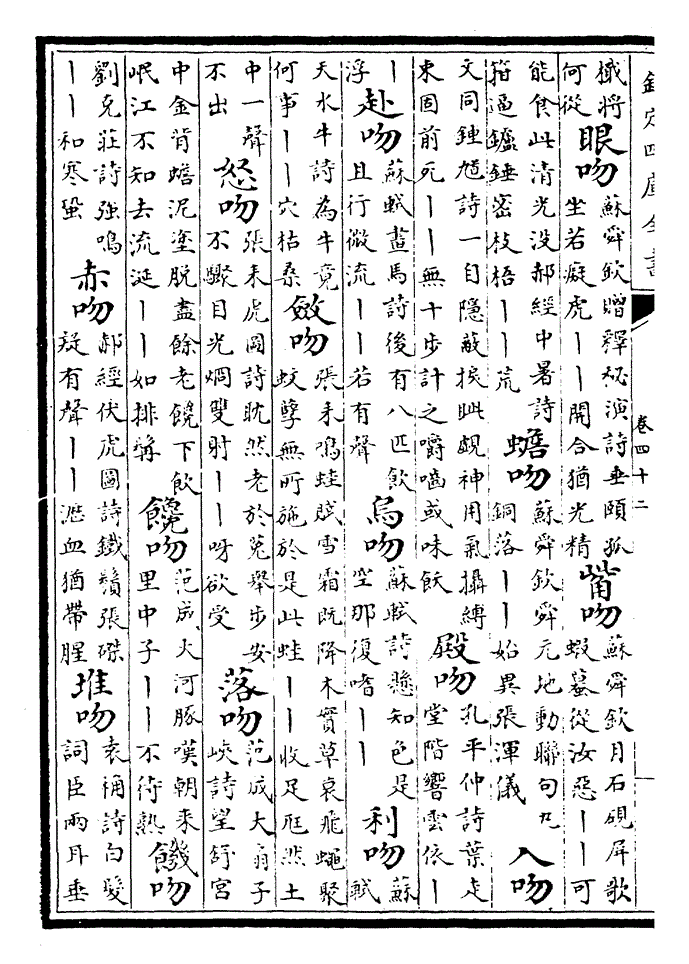 欽定四庫全書 卷四十二
懺將何從 眼吻 蘇舜欽贈釋秘演詩垂頤孤坐若癡虎丨丨開合猶光精 觜吻 蘇舜欽月石硯屏歌蝦蟇從汝惡丨丨可
能食此清光没郝經中暑詩箝逼鑪錘密枝梧丨丨荒 蟾吻 蘇舜欽舜元地動聯句九銅落丨丨始異張渾儀 入吻
文同鍾馗詩一目隠蔽挨眦覷神用氣攝縛東固前死丨丨無十步計之嚼嚙或味飫 殿吻 孔平仲詩葉走堂階響雲依丨
丨浮 赴吻 蘇軾畫馬詩後有八匹飲且行微流丨丨若有聲 烏吻 蘇軾詩懸知色是空那復嗜丨丨 利吻 蘇軾
天水牛詩為牛竟何事丨丨穴枯桑 斂吻 張耒鳴蛙賦雪霜既降木實草哀飛蠅聚蚊孽無所施於是此蛙丨丨收足尫然土
中一聲不出 怒吻 張耒虎圖詩眈然老於菟舉步安不驟目光炯雙射丨丨呀欲受 落吻 范成大扇子峽詩望舒宮
中金背蟾泥塗脱盡餘老饞下飲岷江不知去流涎丨丨如排籌 饞吻 范成大河豚嘆朝来里中子丨丨不待熟 饑吻
劉克莊詩强鳴丨丨和寒蛩 赤吻 郝經伏虎圖詩鐵鬚張磔疑有聲丨丨漇血猶帶腥 堆吻 袁桷詩白髮詞臣兩耳垂